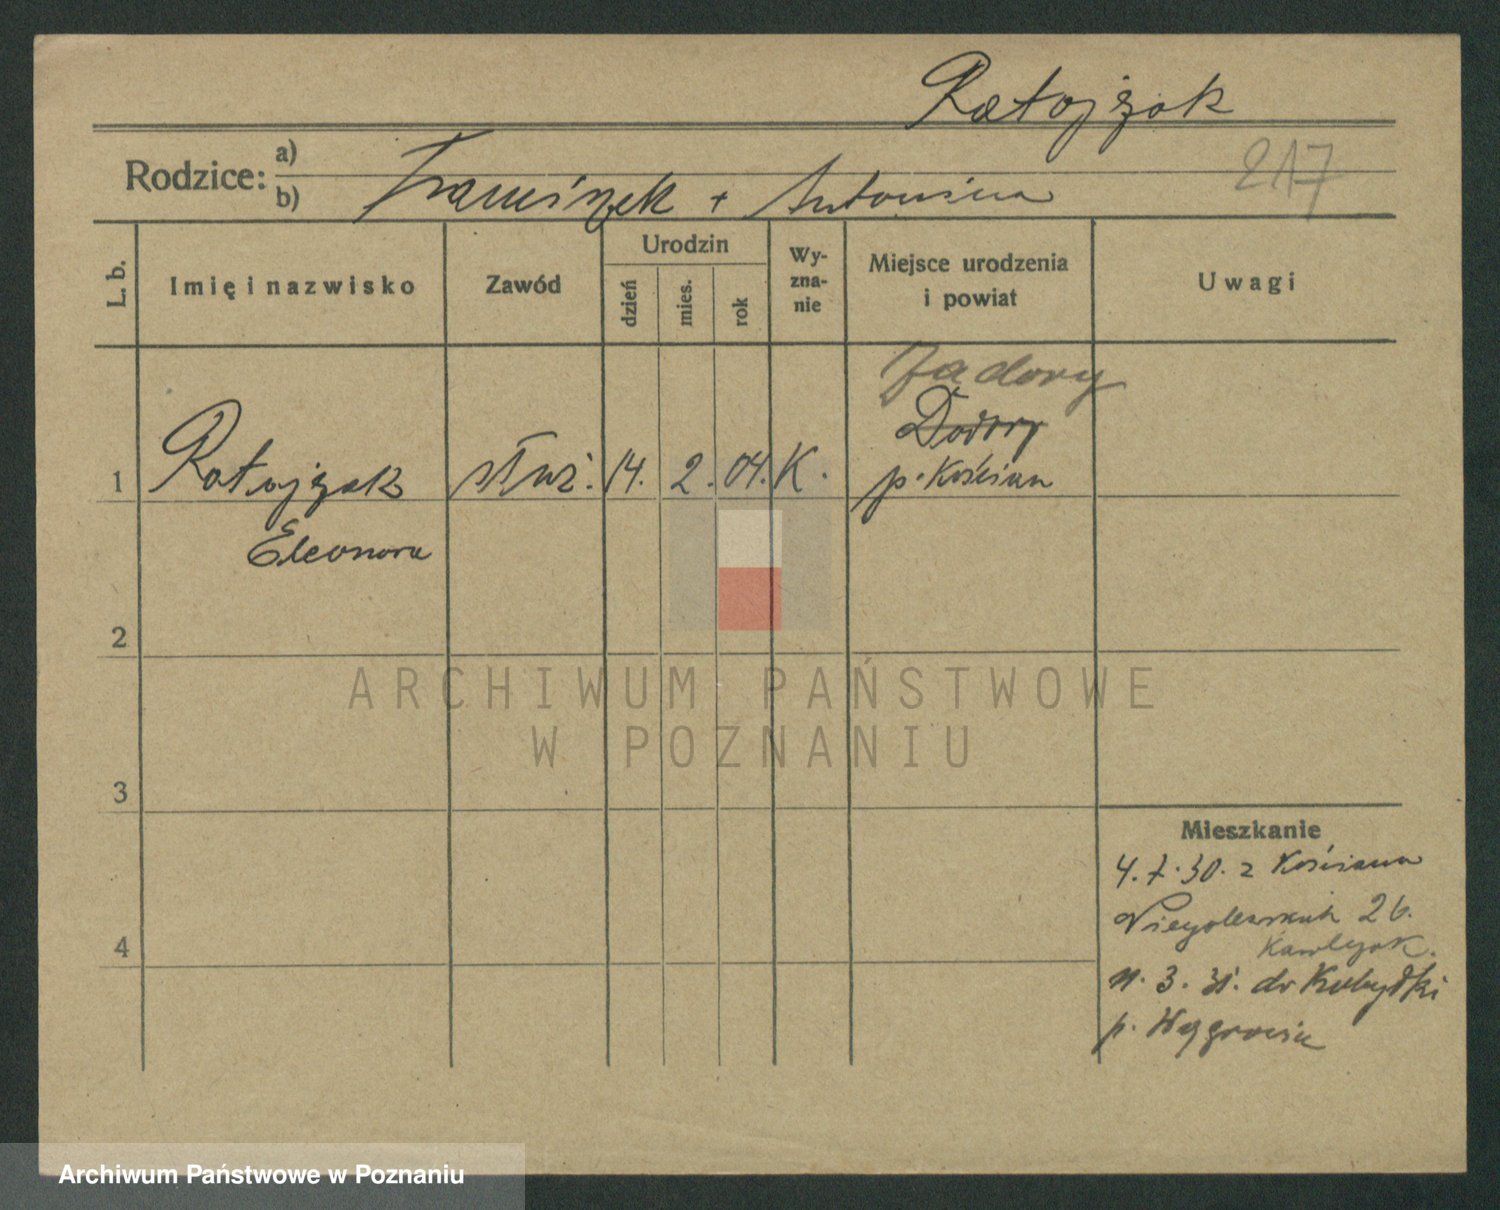 Ratajzak
217
Rodzice: a)
b) Franciszek + Antonina
L. b.
Imię i nazwisko
Zawód
Urodzin
dzień
mies.
rok
Wy-
zna-
nie
Miejsce urodzenia
i powiat
Uwagi
Zadory
1 Ratajzak służ. 14. 2. 04. K. p. Kościan
Eleonora
2
ARCHIWUM PAŃSTWOWE
W POZNANIU
3
Mieszkanie
4. 7. 30. z Kościana
Niegolewskich 26.
4
11. 3. 31. do Kobyłki
p. Węgrowiec
Archiwum Państwowe w Poznaniu